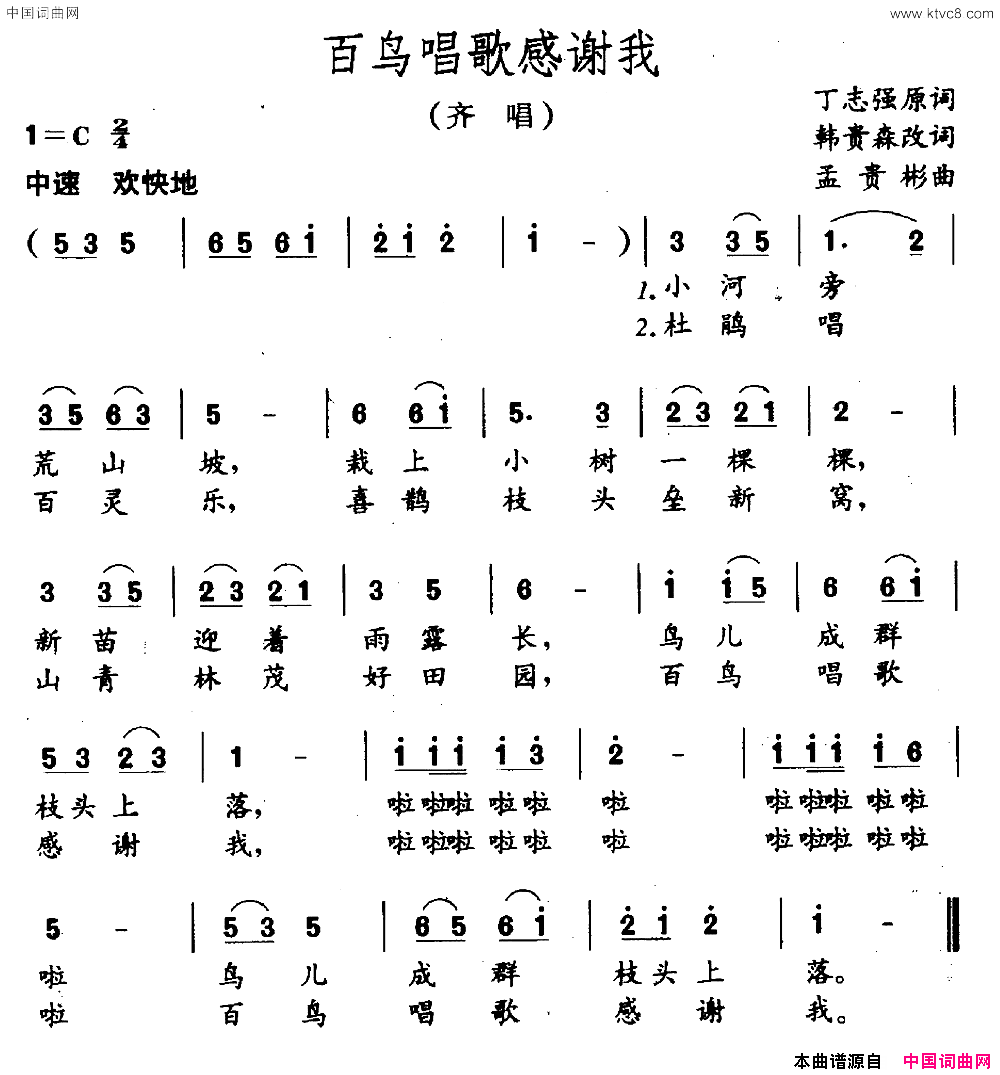 中国词曲网 www.ktvc8.com
百鸟唱歌感谢我
（齐 唱）
丁志强原词
1=C 2/4
韩贵森改词
中速 欢快地
孟贵彬曲
( 5 3 5 | 6 5 6 i | 2̇ i 2̇ | i - ) | 3 3 5 | 1. 2 |
1.小河旁
2.杜鹃唱
3 5 6 3 | 5 - | 6 6 i | 5. 3 | 2 3 2 1 | 2 - |
荒山坡，栽上小树一棵棵，
百灵乐，喜鹊枝头垒新窝，
3 3 5 | 2 3 2 1 | 3 5 | 6 - | i i 5 | 6 6 i |
新苗迎着雨露长，鸟儿成群
山青林茂好田园，百鸟唱歌
5 3 2 3 | 1 - | i i i i 3̇ | 2̇ - | i i i i 6 |
枝头上落，啦啦啦啦啦啦啦啦啦啦啦
感谢我，啦啦啦啦啦啦啦啦啦啦啦
5 - | 5 3 5 | 6 5 6 i | 2̇ i 2̇ | i - ‖
啦鸟儿成群枝头上落。
啦百鸟唱歌感谢我。
本曲谱源自 中国词曲网